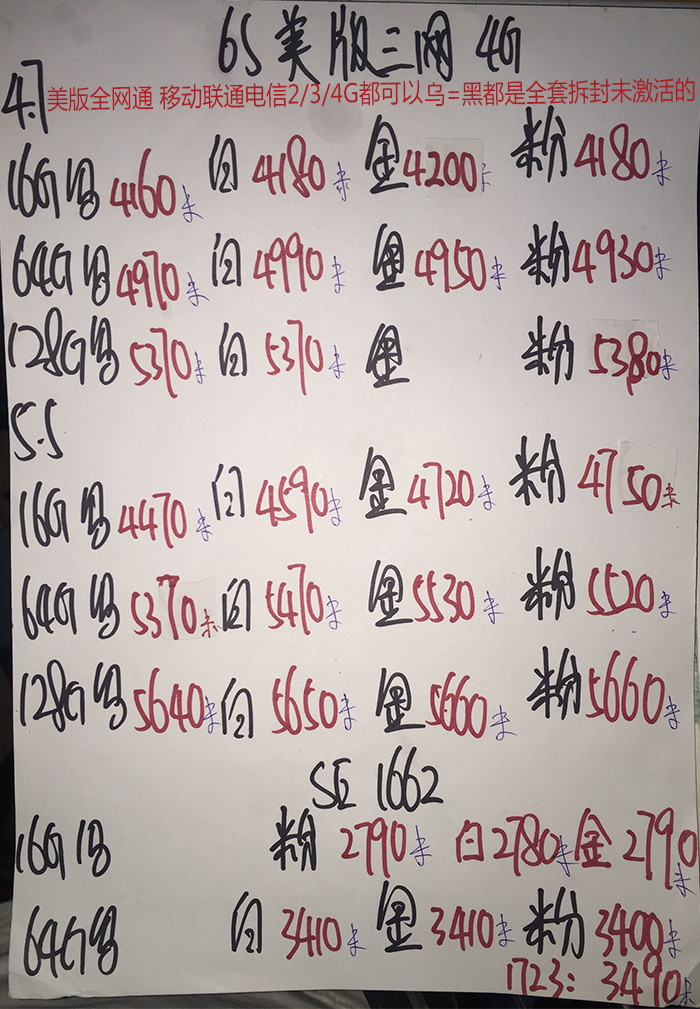 6S美版三网4G
4.7
美版全网通 移动联通电信2/3/4G都可以乌=黑都是全套拆封未激活的
16G乌4160未 白4180未 金4200 粉4180未
64G乌4970未 白4990未 金4950未 粉4930未
128G乌5370未 白5370未 金 粉5380未
5.5
16G乌4470未 白4590未 金4720未 粉4750未
64G乌5370未 白5470未 金5530未 粉5520未
128G乌5640未 白5650未 金5660未 粉5660未
SE 1662
16G乌 粉2790未 白2780未 金2790未
64G乌 白3410未 金3410未 粉3400未
1723: 3490未